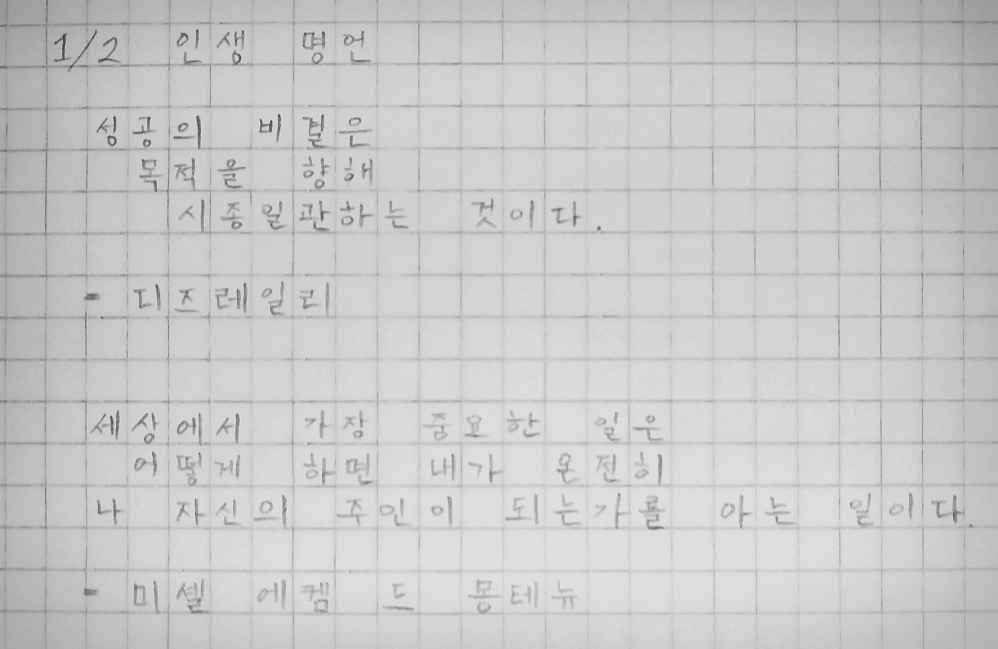 1/2 인생 명언
성공의 비결은
목적을 향해
시종일관하는 것이다.
- 디즈레일리
세상에서 가장 중요한 일은
어떻게 하면 내가 온전히
나 자신의 주인이 되는가를 아는 일이다.
- 미셸 에켐 드 몽테뉴